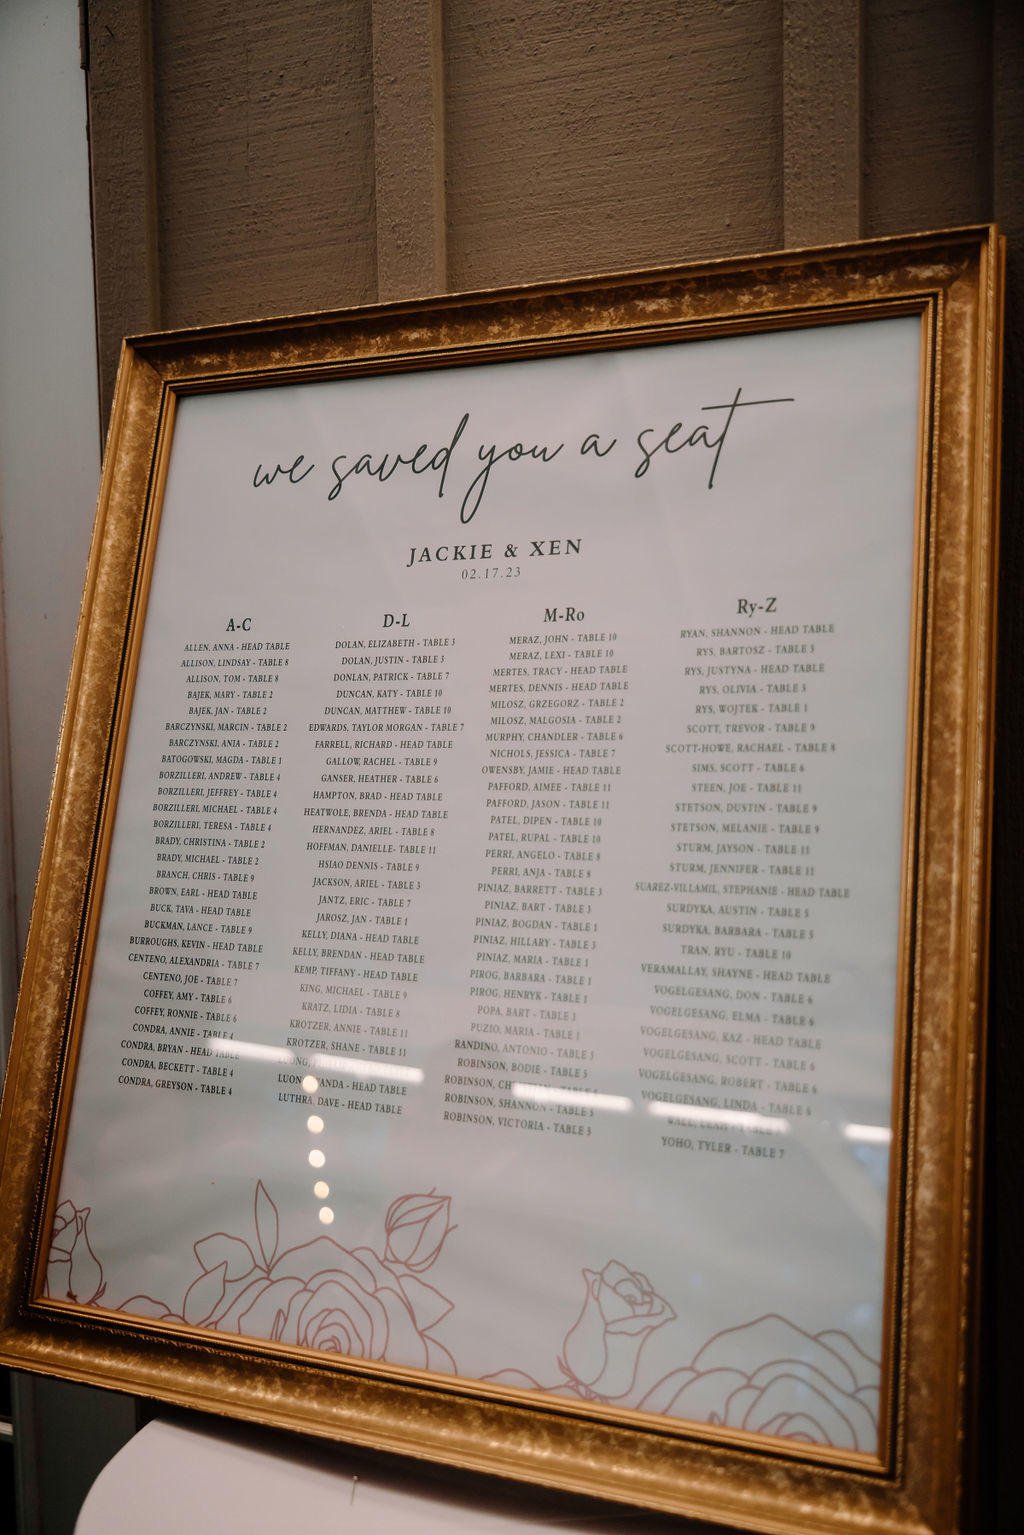 we saved you a seat
JACKIE & XEN
02.17.23
A-C
ALLEN, ANNA - HEAD TABLE
ALLISON, LINDSAY - TABLE 8
ALLISON, TOM - TABLE 8
BAJEK, MARY - TABLE 2
BAJEK, JAN - TABLE 2
BARCZYNSKI, MARCIN - TABLE 2
BARCZYNSKI, ANIA - TABLE 2
BATOGOWSKI, MAGDA - TABLE 1
BORZILLERI, ANDREW - TABLE 4
BORZILLERI, JEFFREY - TABLE 4
BORZILLERI, MICHAEL - TABLE 4
BORZILLERI, TERESA - TABLE 4
BRADY, CHRISTINA - TABLE 2
BRADY, MICHAEL - TABLE 2
BRANCH, CHRIS - TABLE 9
BROWN, EARL - HEAD TABLE
BUCK, TAVA - HEAD TABLE
BUCKMAN, LANCE - TABLE 9
BURROUGHS, KEVIN - HEAD TABLE
CENTENO, ALEXANDRIA - TABLE 7
CENTENO, JOE - TABLE 7
COFFEY, AMY - TABLE 6
COFFEY, RONNIE - TABLE 6
CONDRA, ANNIE - TABLE 4
CONDRA, BRYAN - HEAD TABLE
CONDRA, BECKETT - TABLE 4
CONDRA, GREYSON - TABLE 4
D-L
DOLAN, ELIZABETH - TABLE 3
DOLAN, JUSTIN - TABLE 3
DONLAN, PATRICK - TABLE 7
DUNCAN, KATY - TABLE 10
DUNCAN, MATTHEW - TABLE 10
EDWARDS, TAYLOR MORGAN - TABLE 7
FARRELL, RICHARD - HEAD TABLE
GALLOW, RACHEL - TABLE 9
GANSER, HEATHER - TABLE 6
HAMPTON, BRAD - HEAD TABLE
HEATWOLE, BRENDA - HEAD TABLE
HERNANDEZ, ARIEL - TABLE 8
HOFFMAN, DANIELLE- TABLE 11
HSIAO DENNIS - TABLE 9
JACKSON, ARIEL - TABLE 3
JANTZ, ERIC - TABLE 7
JAROSZ, JAN - TABLE 1
KELLY, DIANA - HEAD TABLE
KELLY, BRENDAN - HEAD TABLE
KEMP, TIFFANY - HEAD TABLE
KING, MICHAEL - TABLE 9
KRATZ, LIDIA - TABLE 8
KROTZER, ANNIE - TABLE 11
KROTZER, SHANE - TABLE 11
LUONG,
HEAD TABLE
LUTHRA, DAVE - HEAD TABLE
M-Ro
MERAZ, JOHN - TABLE 10
MERAZ, LEXI - TABLE 10
MERTES, TRACY - HEAD TABLE
MERTES, DENNIS - HEAD TABLE
MILOSZ, GRZEGORZ - TABLE 2
MILOSZ, MALGOSIA - TABLE 2
MURPHY, CHANDLER - TABLE 6
NICHOLS, JESSICA - TABLE 7
OWENSBY, JAMIE - HEAD TABLE
PAFFORD, AIMEE - TABLE 11
PAFFORD, JASON - TABLE 11
PATEL, DIPEN - TABLE 10
PATEL, RUPAL - TABLE 10
PERRI, ANGELO - TABLE 8
PERRI, ANJA - TABLE 8
PINIAZ, BARRETT - TABLE 3
PINIAZ, BART - TABLE 3
PINIAZ, BOGDAN - TABLE 1
PINIAZ, HILLARY - TABLE 3
PINIAZ, MARIA - TABLE 1
PIROG, BARBARA - TABLE 1
PIROG, HENRYK - TABLE 1
POPA, BART - TABLE 3
PUZIO, MARIA - TABLE 1
RANDINO, ANTONIO - TABLE 5
ROBINSON, BODIE - TABLE 5
ROBINSON,
ROBINSON, SHANNON - TABLE 5
ROBINSON, VICTORIA - TABLE 5
Ry-Z
RYAN, SHANNON - HEAD TABLE
RYS, BARTOSZ - TABLE 3
RYS, JUSTYNA - HEAD TABLE
RYS, OLIVIA - TABLE 3
RYS, WOJTEK - TABLE 1
SCOTT, TREVOR - TABLE 9
SCOTT-HOWE, RACHAEL - TABLE 8
SIMS, SCOTT - TABLE 6
STEEN, JOE - TABLE 11
STETSON, DUSTIN - TABLE 9
STETSON, MELANIE - TABLE 9
STURM, JAYSON - TABLE 11
STURM, JENNIFER - TABLE 11
SUAREZ-VILLAMIL, STEPHANIE - HEAD TABLE
SURDYKA, AUSTIN - TABLE 5
SURDYKA, BARBARA - TABLE 5
TRAN, RYU - TABLE 10
VERAMALLAY, SHAYNE - HEAD TABLE
VOGELGESANG, DON - TABLE 6
VOGELGESANG, ELMA - TABLE 6
VOGELGESANG, KAZ - HEAD TABLE
VOGELGESANG, SCOTT - TABLE 6
VOGELGESANG, ROBERT - TABLE 6
VOGELGESANG, LINDA - TABLE 6
LEAH - TABLE
YOHO, TYLER - TABLE 7